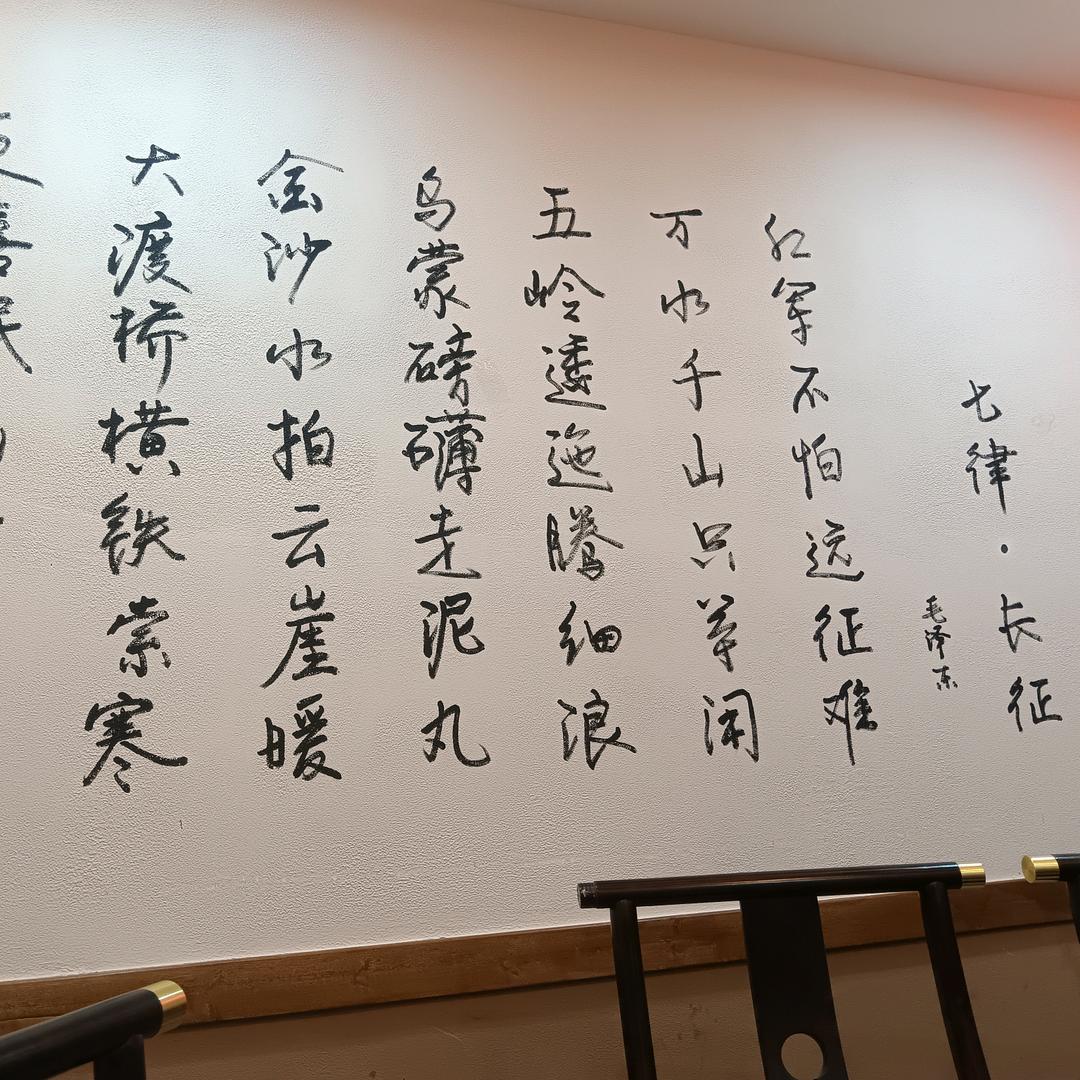 七律·长征
毛泽东
红军不怕远征难
万水千山只等闲
五岭逶迤腾细浪
乌蒙磅礴走泥丸
金沙水拍云崖暖
大渡桥横铁索寒
喜